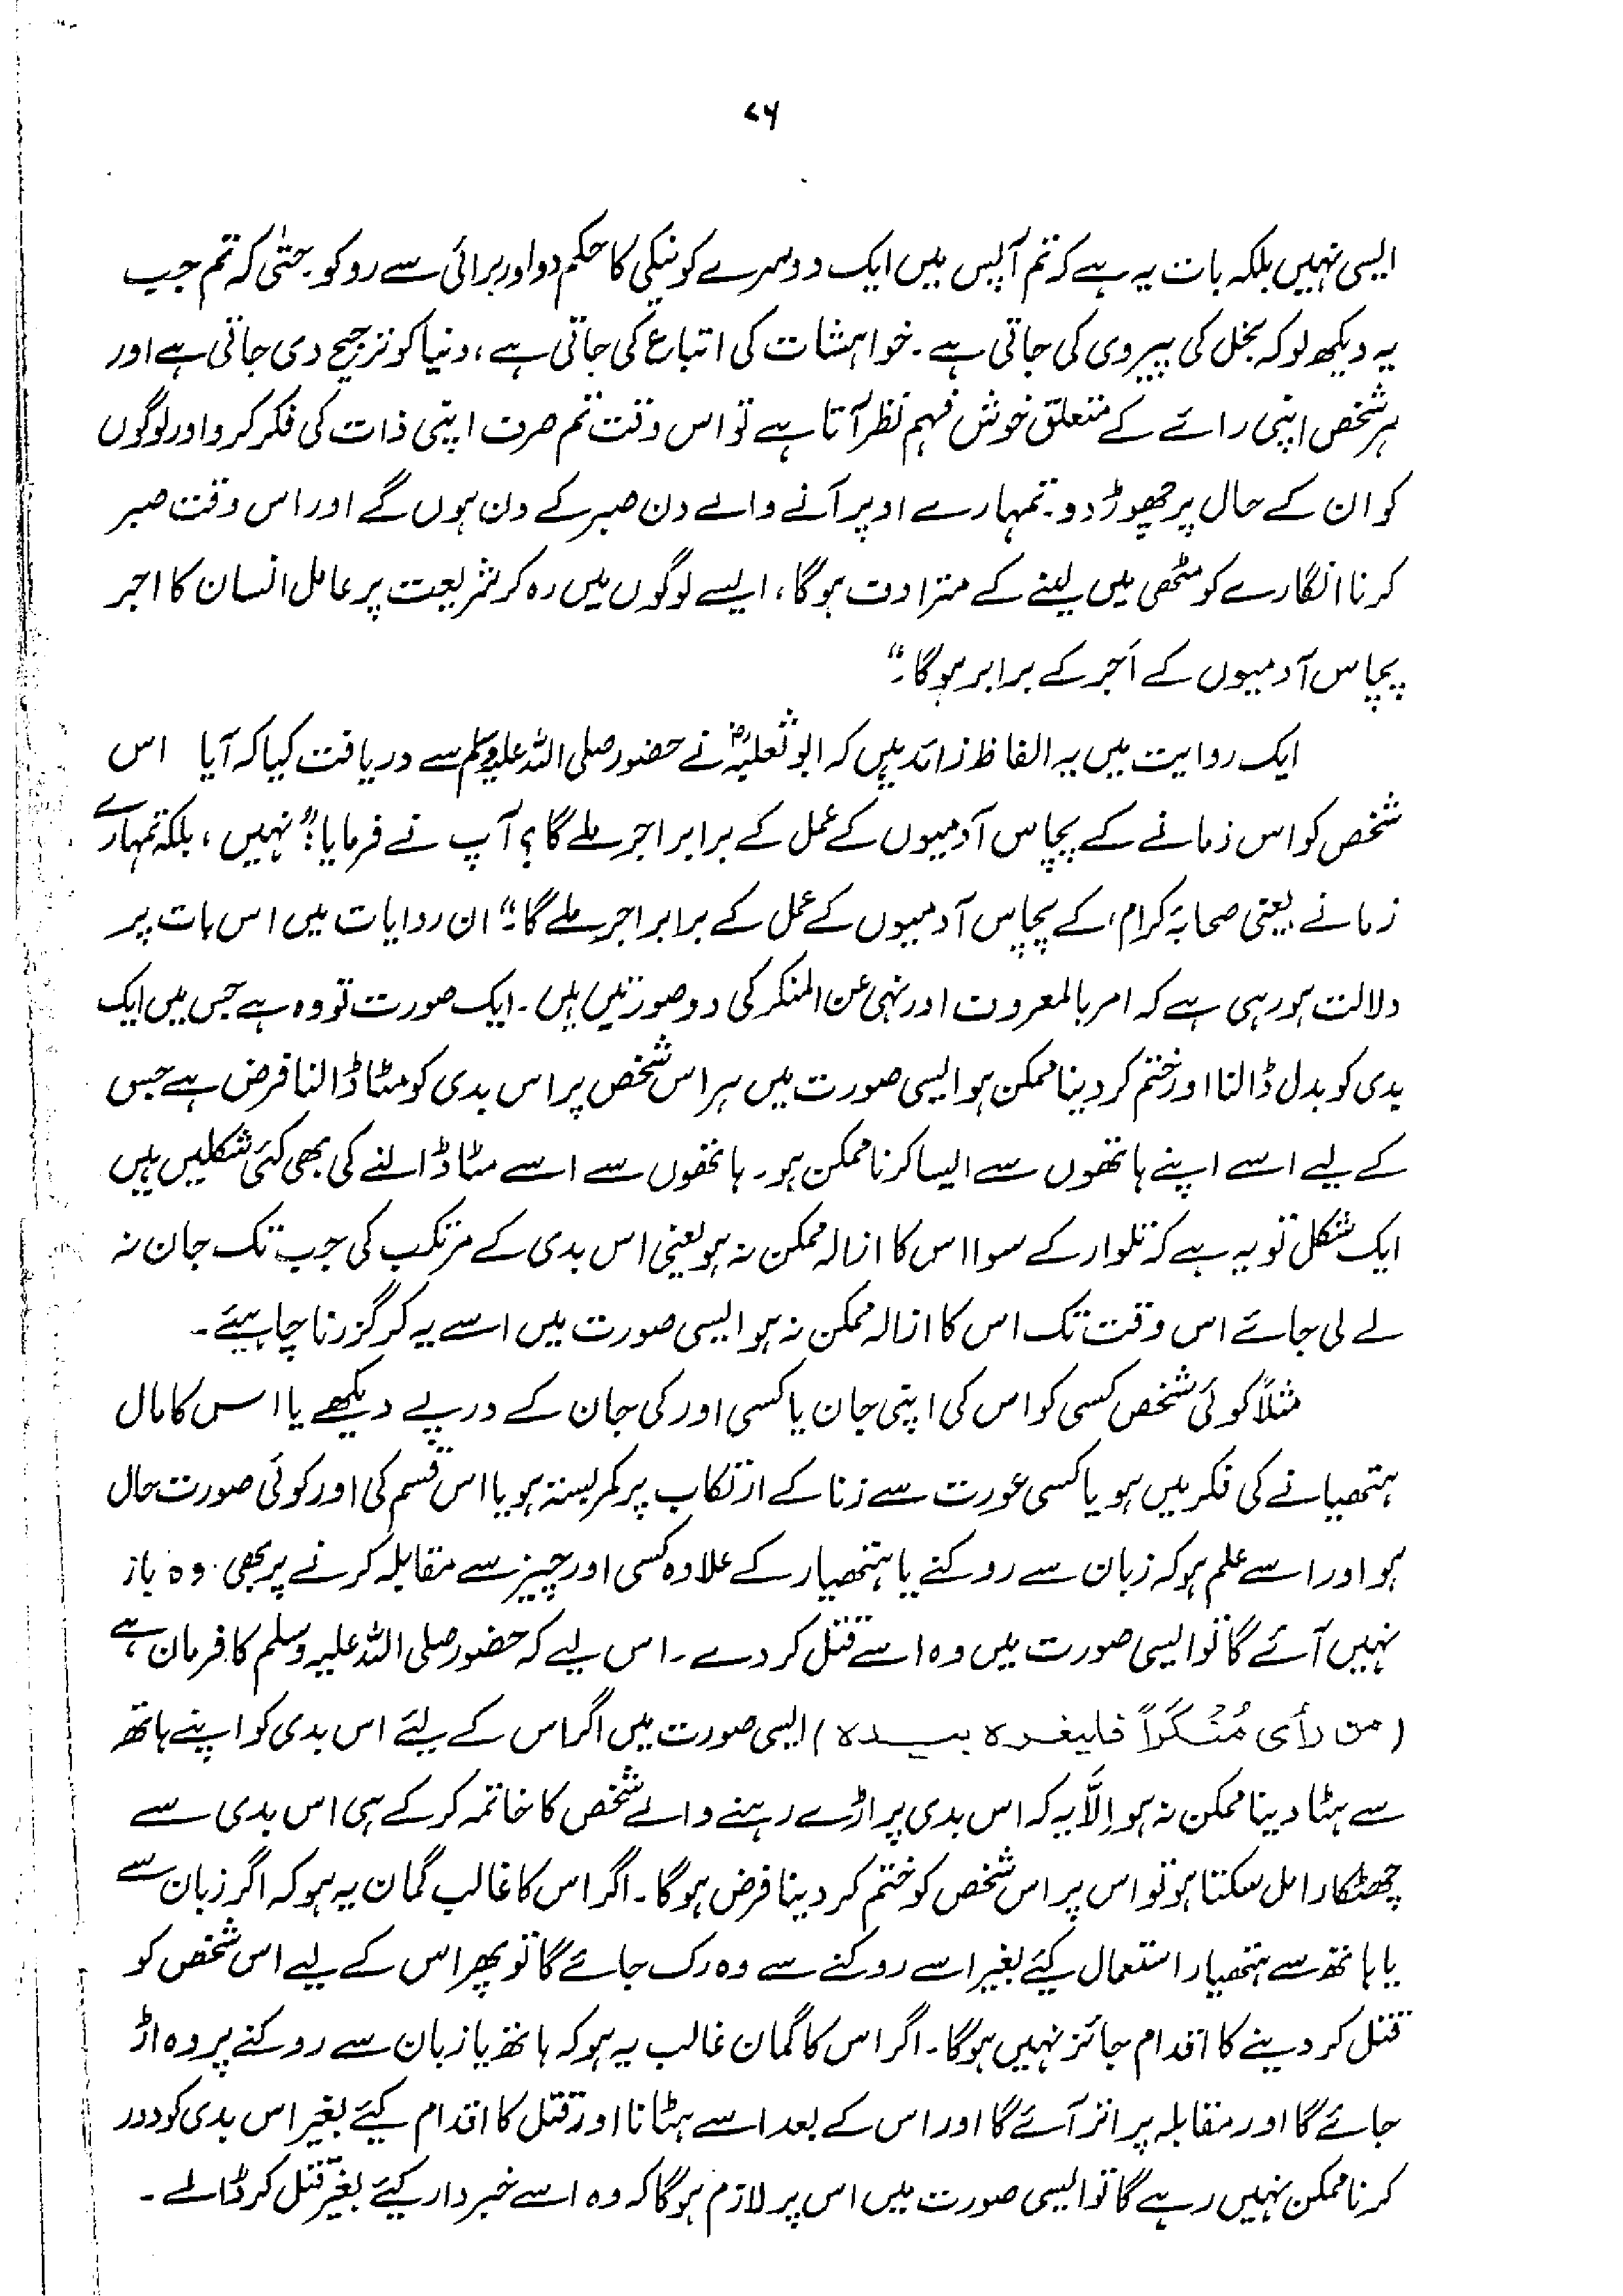 ۷۶
ایسی نہیں بلکہ بات یہ ہے کہ تم آپس میں ایک دوسرے کو نیکی کا حکم دو اور برائی سے روکو۔ حتیٰ کہ تم جب
یہ دیکھ لو کہ بخل کی پیروی کی جاتی ہے۔ خواہشات کی اتباع کی جاتی ہے، دنیا کو ترجیح دی جاتی ہے اور
ہر شخص اپنی رائے کے متعلق خوش فہم نظر آتا ہے تو اس وقت تم صرف اپنی ذات کی فکر کرو اور لوگوں
کو ان کے حال پر چھوڑ دو۔ تمہارے اوپر آنے والے دن صبر کے دن ہوں گے اور اس وقت صبر
کرنا انگارے کو مٹھی میں لینے کے مترادف ہوگا، ایسے لوگوں میں رہ کر شریعت پر عامل انسان کا اجر
پچاس آدمیوں کے اَجر کے برابر ہوگا۔"
ایک روایت میں یہ الفاظ زائد ہیں کہ ابو ثعلبہؓ نے حضور صلی اللہ علیہ وسلم سے دریافت کیا کہ آیا اس
شخص کو اس زمانے کے پچاس آدمیوں کے عمل کے برابر اجر ملے گا؟ آپ نے فرمایا: "نہیں، بلکہ تمہارے
زمانے یعنی صحابہ کرام، کے پچاس آدمیوں کے عمل کے برابر اجر ملے گا۔" ان روایات میں اس بات پر
دلالت ہو رہی ہے کہ امر بالمعروف اور نہی عن المنکر کی دو صورتیں ہیں۔ ایک صورت تو وہ ہے جس میں ایک
بدی کو بدل ڈالنا اور ختم کر دینا ممکن ہو ایسی صورت میں ہر اس شخص پر اس بدی کو مٹا ڈالنا فرض ہے جس
کے لیے اسے اپنے ہاتھوں سے ایسا کرنا ممکن ہو۔ ہاتھوں سے اسے مٹا ڈالنے کی بھی کئی شکلیں ہیں
ایک شکل تو یہ ہے کہ تلوار کے سوا اس کا ازالہ ممکن نہ ہو یعنی اس بدی کے مرتکب کی جب تک جان نہ
لے لی جائے اس وقت تک اس کا ازالہ ممکن نہ ہو ایسی صورت میں اسے یہ کر گزرنا چاہیئے۔
مثلاً کوئی شخص کسی کو اس کی اپنی جان یا کسی اور کی جان کے درپے دیکھے یا اس کا مال
ہتھیانے کی فکر میں ہو یا کسی عورت سے زنا کے ارتکاب پر کمر بستہ ہو یا اس قسم کی اور کوئی صورت حال
ہو اور اسے علم ہو کہ زبان سے روکنے یا ہتھیار کے علاوہ کسی اور چیز سے مقابلہ کرنے پر بھی وہ باز
نہیں آئے گا تو ایسی صورت میں وہ اسے قتل کر دے۔ اس لیے کہ حضور صلی اللہ علیہ وسلم کا فرمان ہے
(من رأی مُنْکَراً فلیغیرہ بیدہ) ایسی صورت میں اگر اس کے لیئے اس بدی کو اپنے ہاتھ
سے ہٹا دینا ممکن نہ ہو اِلاَّ یہ کہ اس بدی پر اڑے رہنے والے شخص کا خاتمہ کر کے ہی اس بدی سے
چھٹکارا مل سکتا ہو تو اس پر اس شخص کو ختم کر دینا فرض ہوگا۔ اگر اس کا غالب گمان یہ ہو کہ اگر زبان سے
یا ہاتھ سے ہتھیار استعمال کیئے بغیر اسے روکنے سے وہ رک جائے گا تو پھر اس کے لیے اس شخص کو
قتل کر دینے کا اقدام جائز نہیں ہوگا۔ اگر اس کا گمان غالب یہ ہو کہ ہاتھ یا زبان سے روکنے پر وہ اڑ
جائے گا اور مقابلہ پر اتر آئے گا اور اس کے بعد اسے ہٹانا اور قتل کا اقدام کیئے بغیر اس بدی کو دور
کرنا ممکن نہیں رہے گا تو ایسی صورت میں اس پر لازم ہوگا کہ وہ اسے خبردار کیئے بغیر قتل کر ڈالے۔